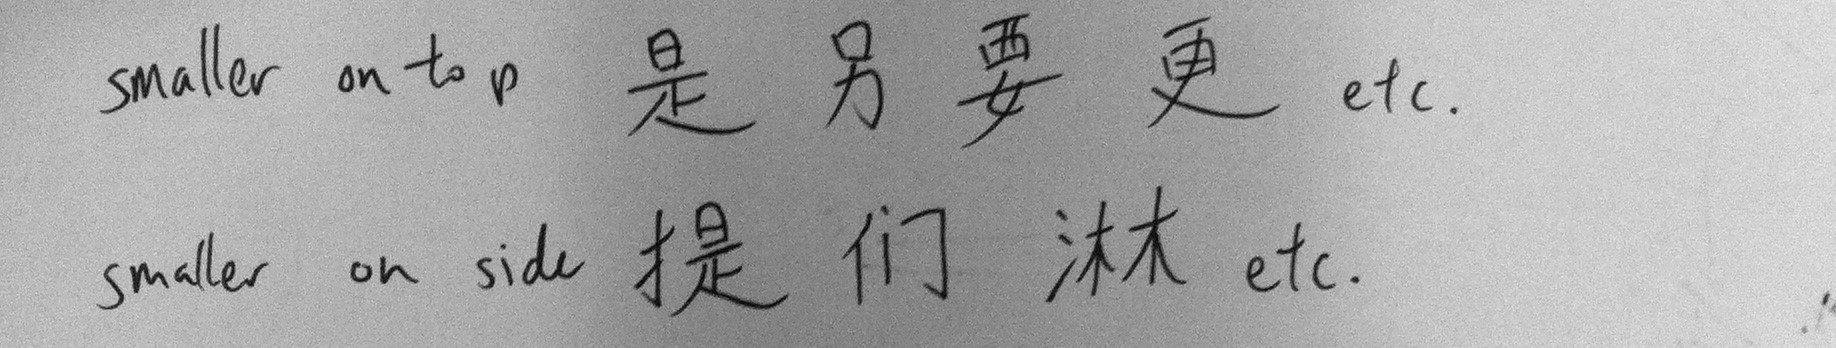 smaller on top 是 另 要 更 etc.
smaller on side 提 们 淋 etc.